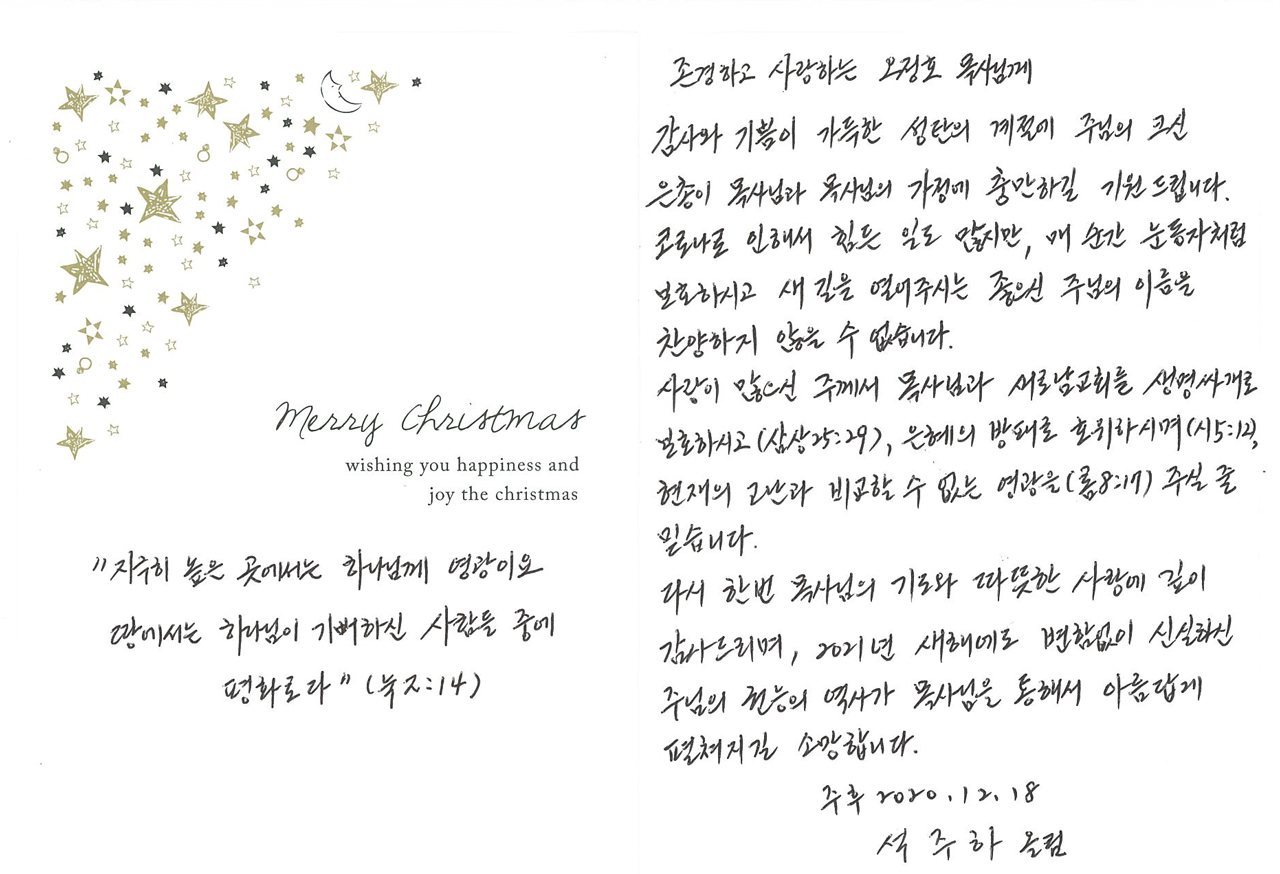 Merry Christmas
wishing you happiness and
joy the christmas
"지극히 높은 곳에서는 하나님께 영광이요
땅에서는 하나님이 기뻐하신 사람들 중에
평화로다" (눅2:14)
존경하고 사랑하는 오정호 목사님께
감사와 기쁨이 가득한 성탄의 계절에 주님의 크신
은총이 목사님과 목사님의 가정에 충만하길 기원드립니다.
코로나로 인해서 힘든 일도 많지만, 매 순간 눈동자처럼
보호하시고 새 길을 열어주시는 좋으신 주님의 이름을
찬양하지 않을 수 없습니다.
사랑이 많으신 주께서 목사님과 새로남교회를 생명싸개로
보호하시고(삼상25:29), 은혜의 방패로 호위하시며(시5:12),
현재의 고난과 비교할 수 없는 영광을(롬8:17) 주실 줄
믿습니다.
다시 한번 목사님의 기도와 따뜻한 사랑에 깊이
감사드리며, 2021년 새해에도 변함없이 신실하신
주님의 권능의 역사가 목사님을 통해서 아름답게
펼쳐지길 소망합니다.
주후 2020.12.18
석주하 올림